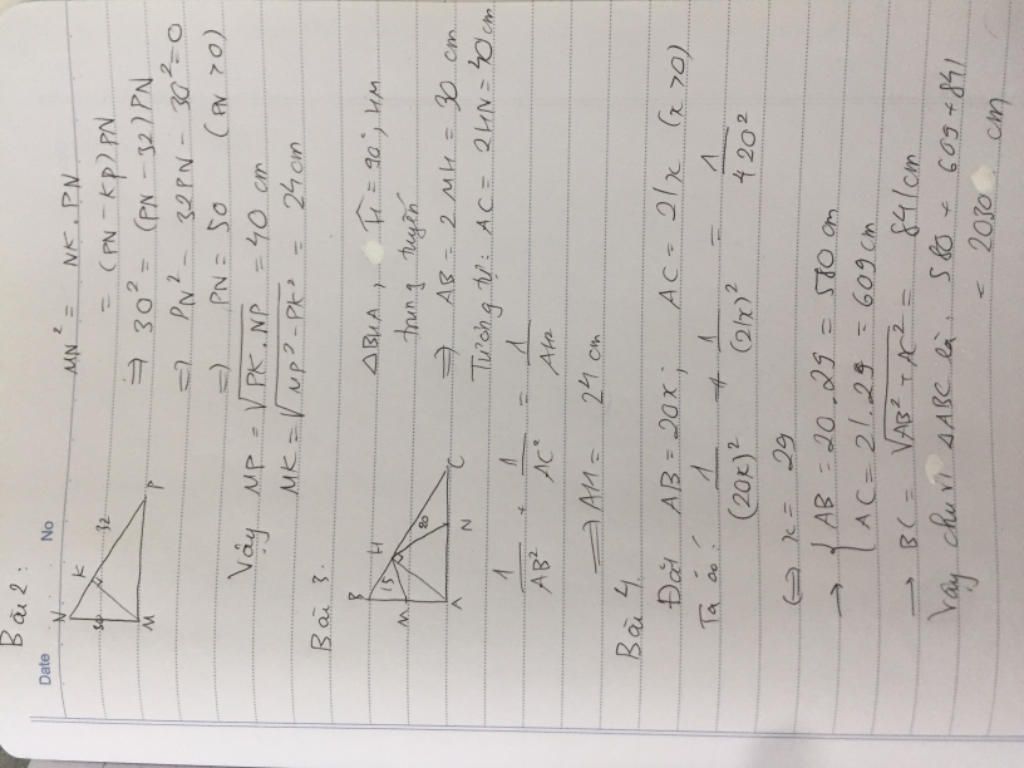 Bài 2:
Date No
N
K
32
30
M
P
MN² = NK . PN
= (PN - KP) PN
⇒ 30² = (PN - 32) PN
⇒ PN² - 32PN - 30² = 0
⇒ PN = 50 (PN > 0)
Vậy MP = √PK . NP = 40 cm
MK = √MP² - PK² = 24 cm
Bài 3.
B
H
15
20
M
A
N
C
ΔBHA, Ĥ = 90°, HM
trung tuyến
⇒ AB = 2 MH = 30 cm
Tương tự: AC = 2HN = 40 cm
1/AB² + 1/AC² = 1/AH²
⇒ AH = 24 cm
Bài 4.
Đặt AB = 20x; AC = 21x (x > 0)
Ta có: 1/(20x)² + 1/(21x)² = 1/420²
⇔ x = 29
→ { AB = 20.29 = 580 cm
AC = 21.29 = 609 cm
→ BC = √AB² + AC² = 841 cm
Vậy chu vi ΔABC là: 580 + 609 + 841
= 2030 cm